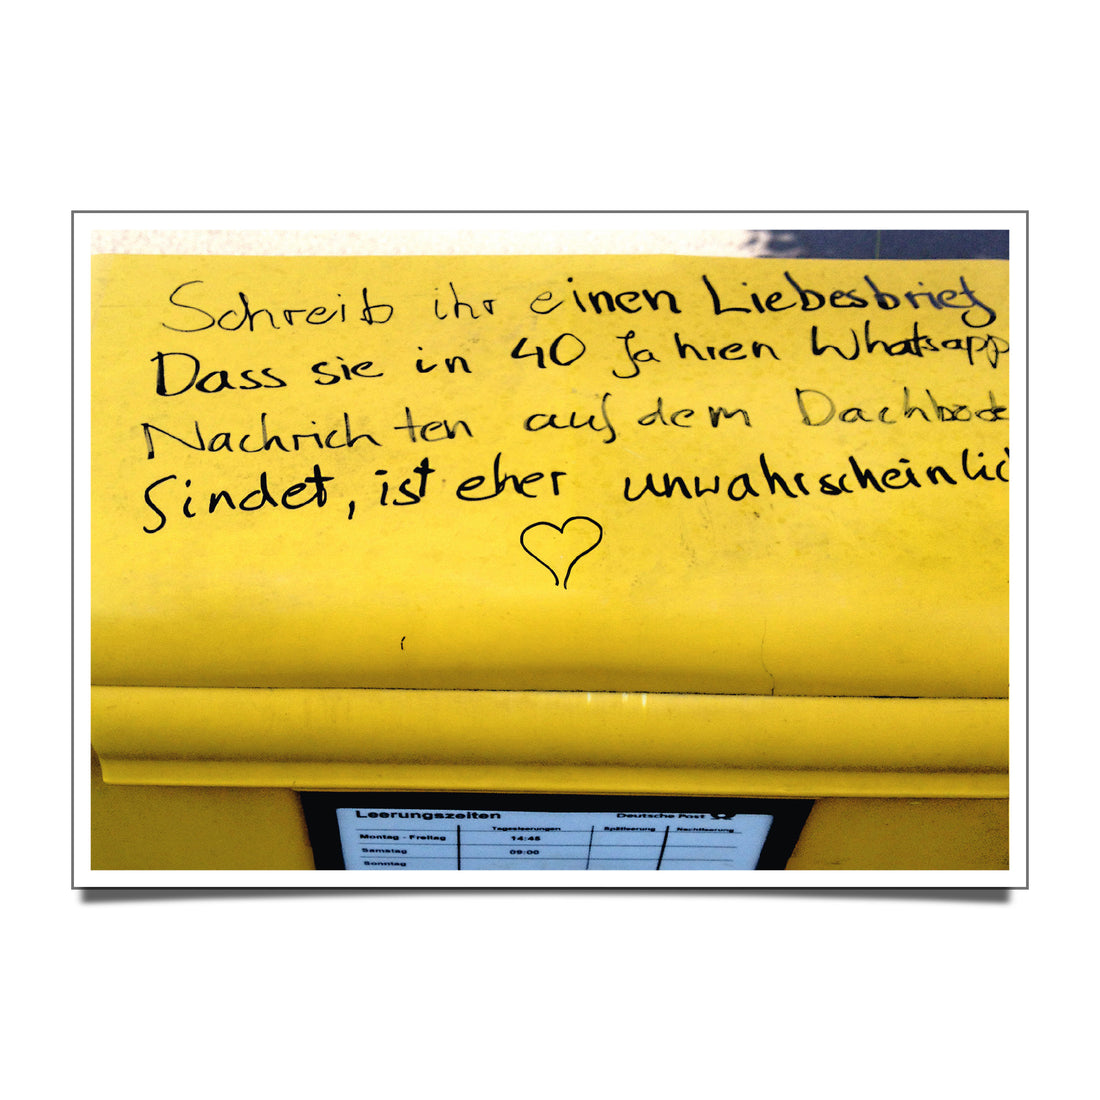 Schreib ihr einen Liebesbrief
Dass sie in 40 Jahren Whatsapp
Nachrichten auf dem Dachbode
findet, ist eher unwahrscheinlic
Leerungszeiten Deutsche Post
Tagesleerungen Spätleerung Nachtleerung
Montag - Freitag 14:45
Samstag 09:00
Sonntag